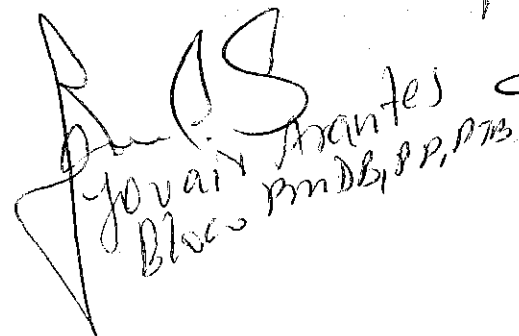 Jovair Arantes
Bloco PMDB, PP, PTB